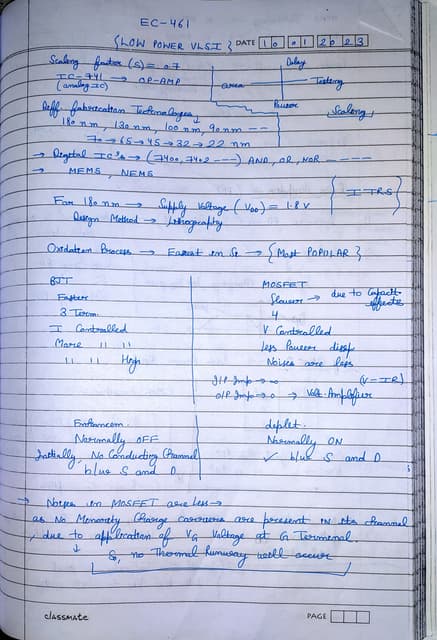 EC-461
{LOW POWER VLSI} DATE 10 01 2023
Scaling factor (S) = 0.7
Delay
IC-741 → OP-AMP
(analog IC)
area
Testing
Power
Scaling
Diff. fabrication Technologies
180 nm, 130 nm, 100 nm, 90nm ---
70 → 65 → 45 → 32 → 22 nm
→ Digital IC's → (7400, 7402 ---) AND, OR, NOR - - - -
→ MEMS, NEMS
{ITRS}
For 180 nm → Supply Voltage (VDD) = 1.8 V
Design Method → Lithography
Oxidation Process → Easiest in Si → {Most POPULAR}
BJT
Faster
3 Term.
I Controlled
More " "
" " High
MOSFET
Slower → due to Capacit. effects
4
V Controlled
Less Power dissp
Noises are less
I/P Imp → ∞ (V=IR)
O/P Imp → 0 → Volt. Amplifier
Enhancem.
Normally OFF
Initially, No Conducting Channel
b/w S and D
deplet.
Normally ON
✓ b/w S and D
→ Noises in MOSFET are less →
as No Monority Charge carriers are present IN its channel
, due to application of VG Voltage at G Terminal.
↓
So, no Thermal Runway will occur
classmate
PAGE